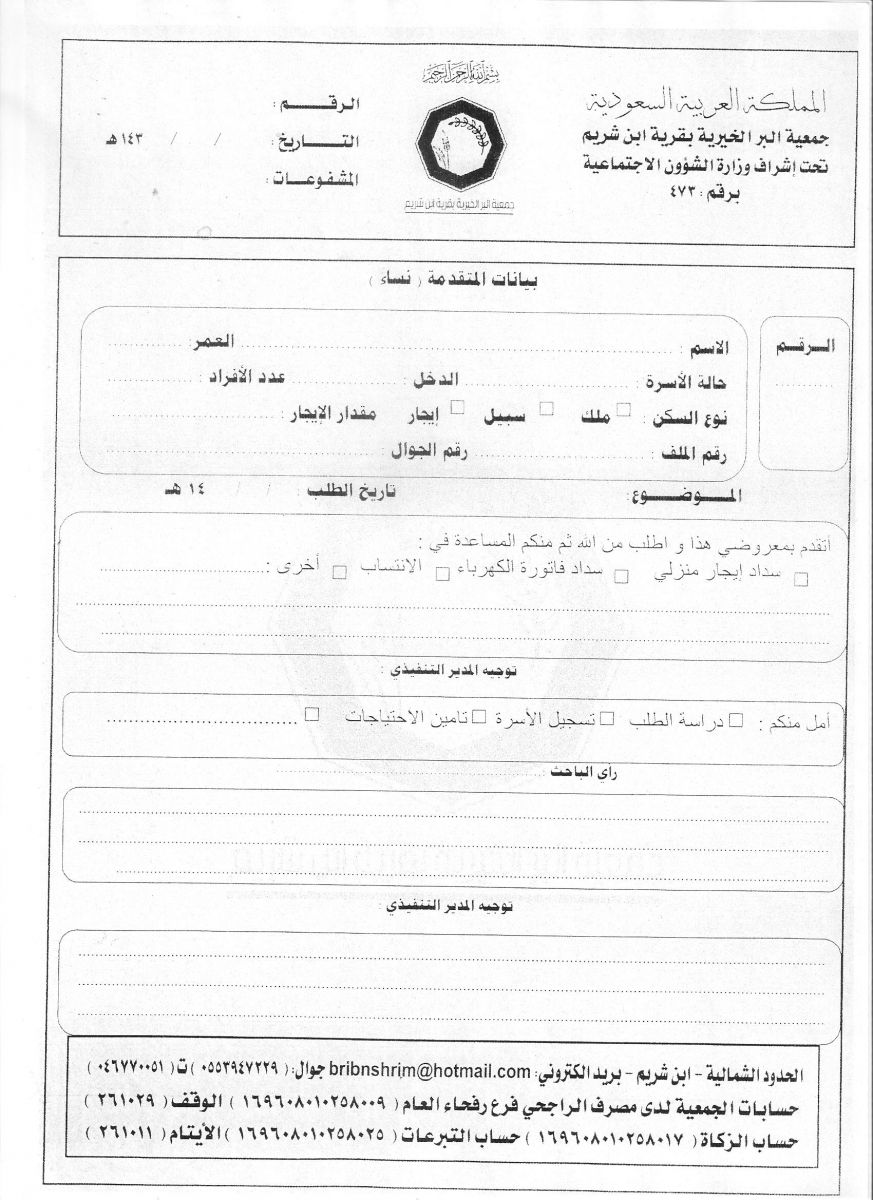 بسم الله الرحمن الرحيم
المملكة العربية السعودية
جمعية البر الخيرية بقرية ابن شريم
تحت إشراف وزارة الشؤون الاجتماعية
برقم : ٤٧٣
جمعية البر الخيرية بقرية ابن شريم
الرقـــــم :
التـــاريخ : / / ١٤٣هـ
المشفوعات :
بيانات المتقدمة ( نساء )
الـرقـــم
الاسم : العمر:
حالة الأسرة : الدخل : عدد الأفراد :
نوع السكن : □ ملك □ سبيل □ إيجار مقدار الإيجار :
رقم الملف : رقم الجوال :
المـــوضـــوع: تاريخ الطلب : / / ١٤ هـ
أتقدم بمعروضي هذا و اطلب من الله ثم منكم المساعدة في :
□ سداد إيجار منزلي □ سداد فاتورة الكهرباء □ الانتساب □ أخرى :
توجيه المدير التنفيذي :
أمل منكم : □ دراسة الطلب □ تسجيل الأسرة □ تامين الاحتياجات □
رأي الباحث :
توجيه المدير التنفيذي :
الحدود الشمالية - ابن شريم - بريد الكتروني: bribnshrim@hotmail.com جوال: ( ٠٥٥٣٩٤٧٢٢٩ ) ت ( ٠٤٦٧٧٠٠٥١ )
حسابات الجمعية لدى مصرف الراجحي فرع رفحاء العام ( ١٦٩٦٠٨٠١٠٢٥٨٠٠٩ ) الوقف ( ٢٦١٠٢٩ )
حساب الزكاة ( ١٦٩٦٠٨٠١٠٢٥٨٠١٧ ) حساب التبرعات ( ١٦٩٦٠٨٠١٠٢٥٨٠٢٥ ) الأيتام ( ٢٦١٠١١ )